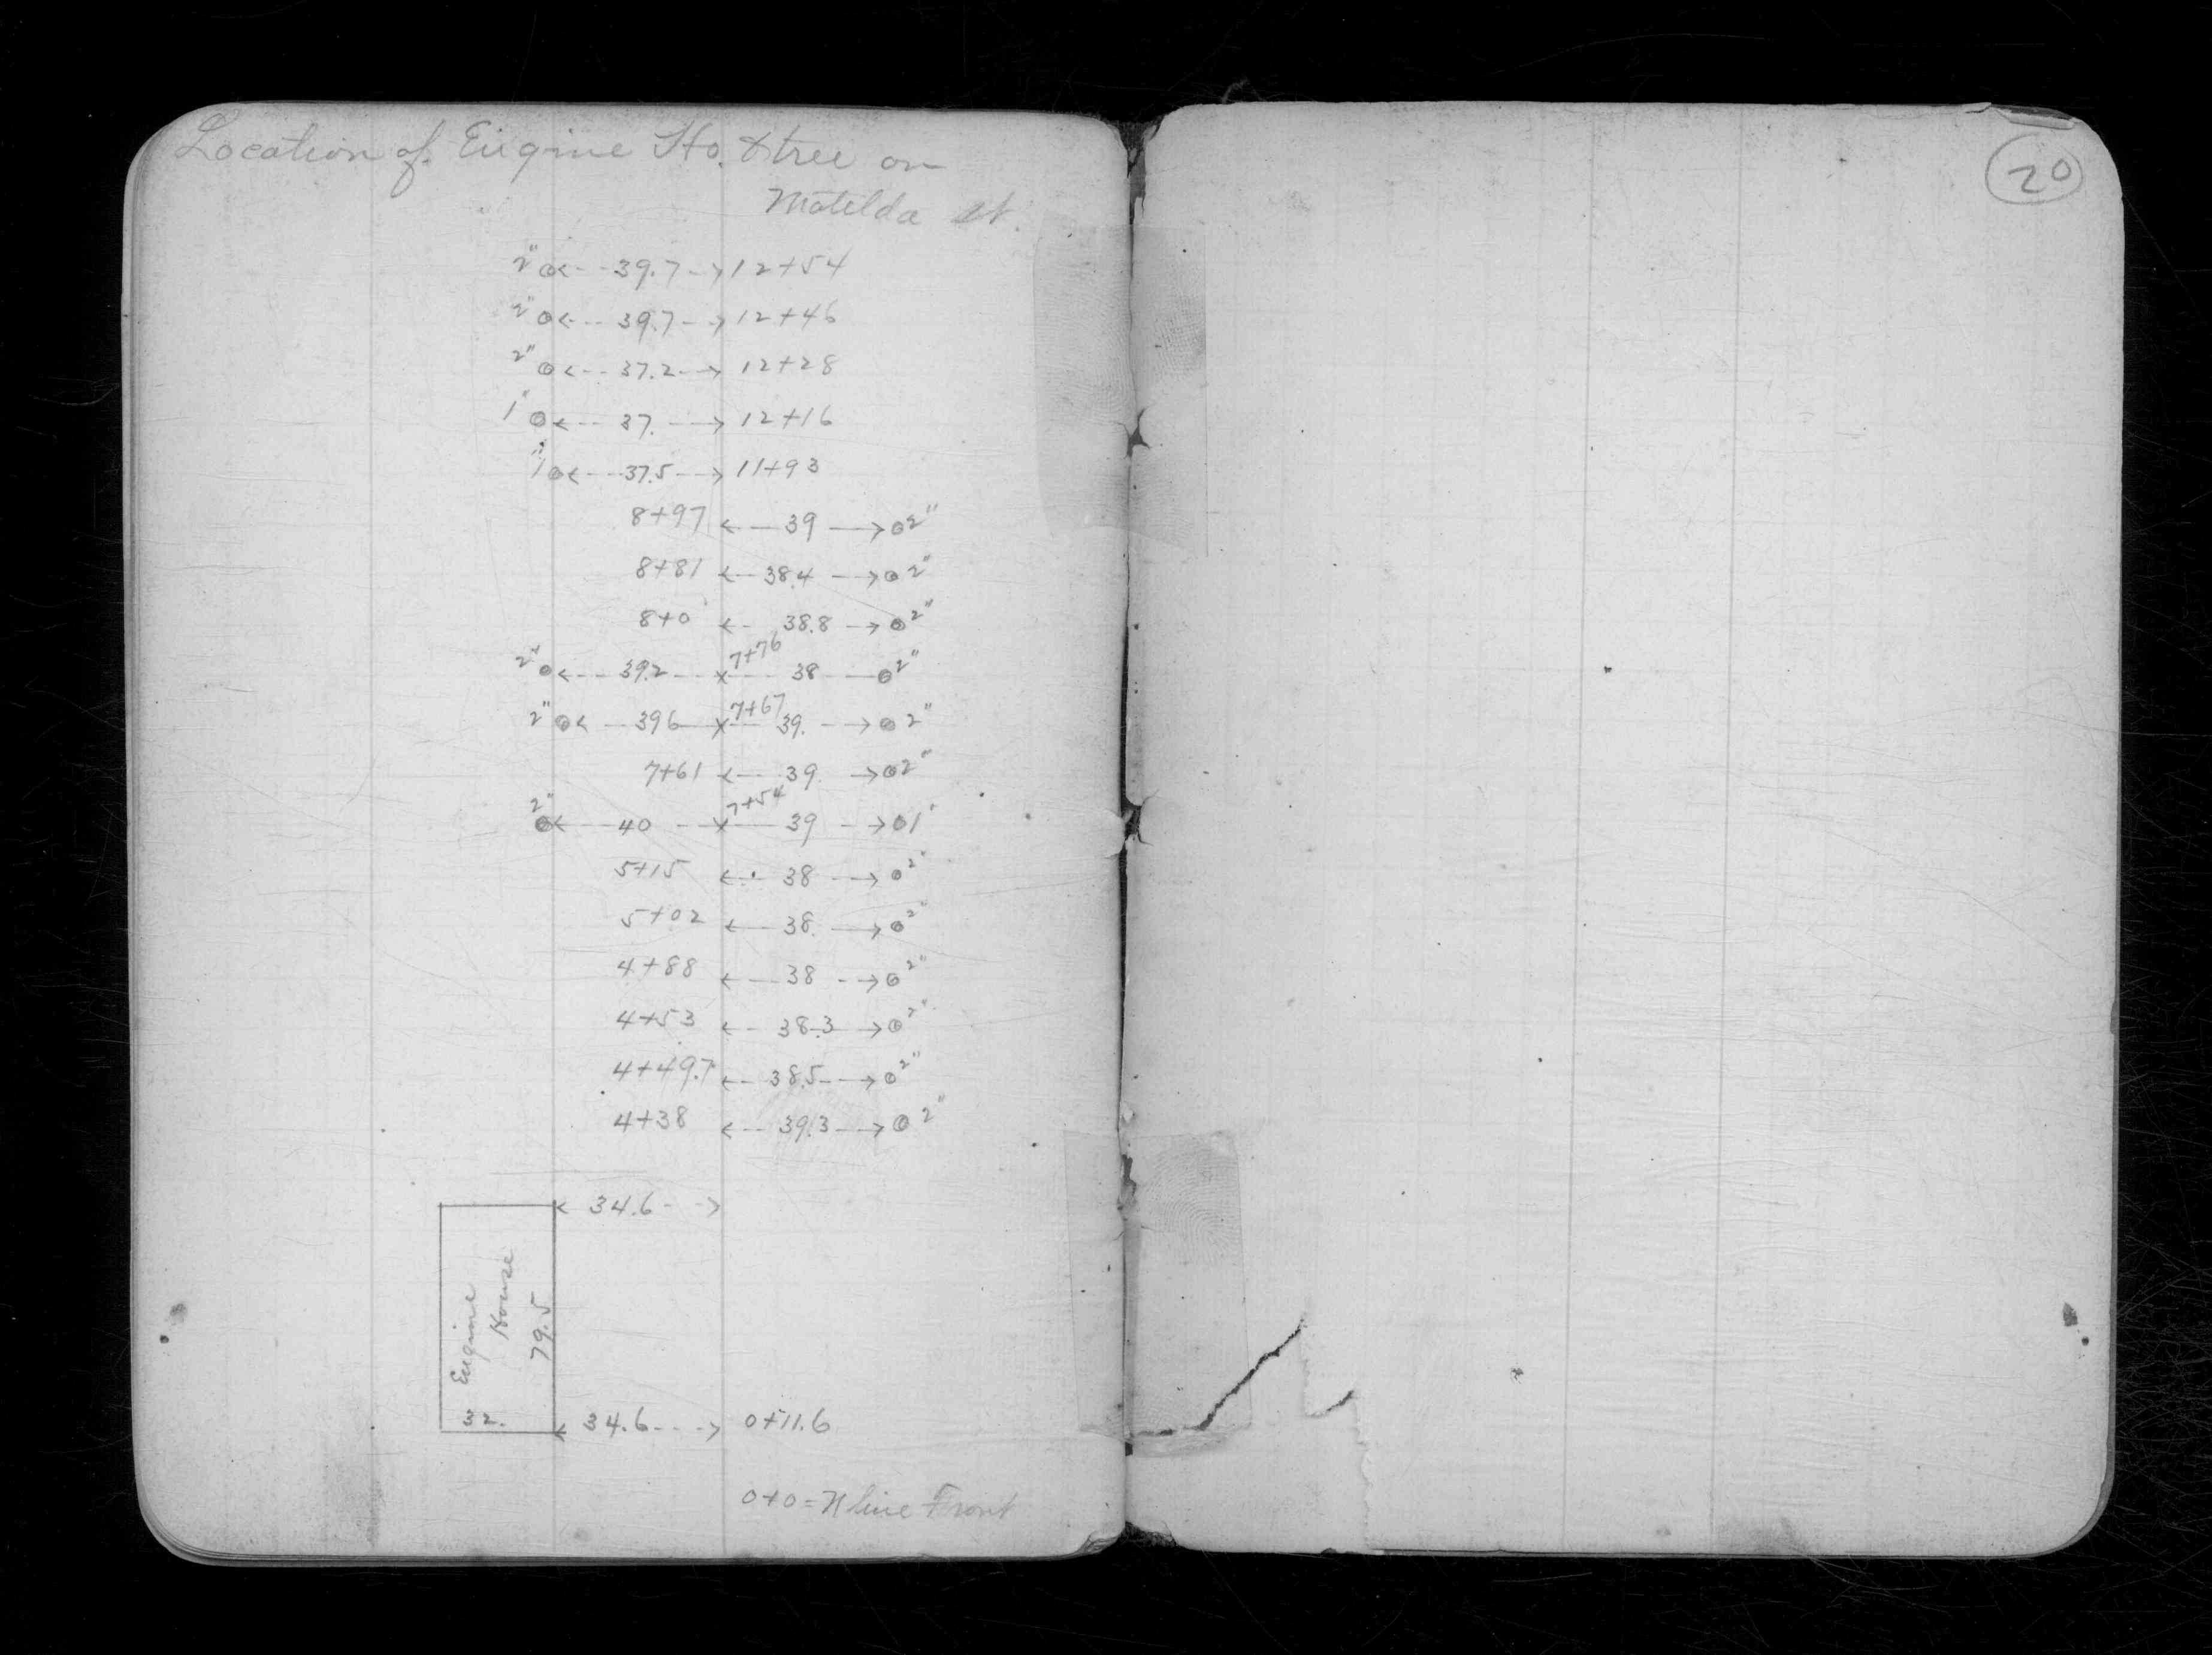 Location of Engine Ho. & tree on
Matilda St.
20
2" 39.7 12+54
2" 39.7 12+46
2" 37.2 12+28
1" 37. 12+16
1" 37.5 11+93
8+97 39 2"
8+81 38.4 2"
8+0 38.8 2"
2" 39.2 7+76 38 2"
2" 39 6 7+67 39. 2"
7+61 39. 2"
2" 40 7+54 39 1"
5+15 38 2"
5+02 38. 2"
4+88 38 2"
4+53 38.3 2"
4+49.7 38.5 2"
4+38 39.3 2"
34.6
Engine
House
79.5
32.
34.6 0+11.6
0+0 = N line Front